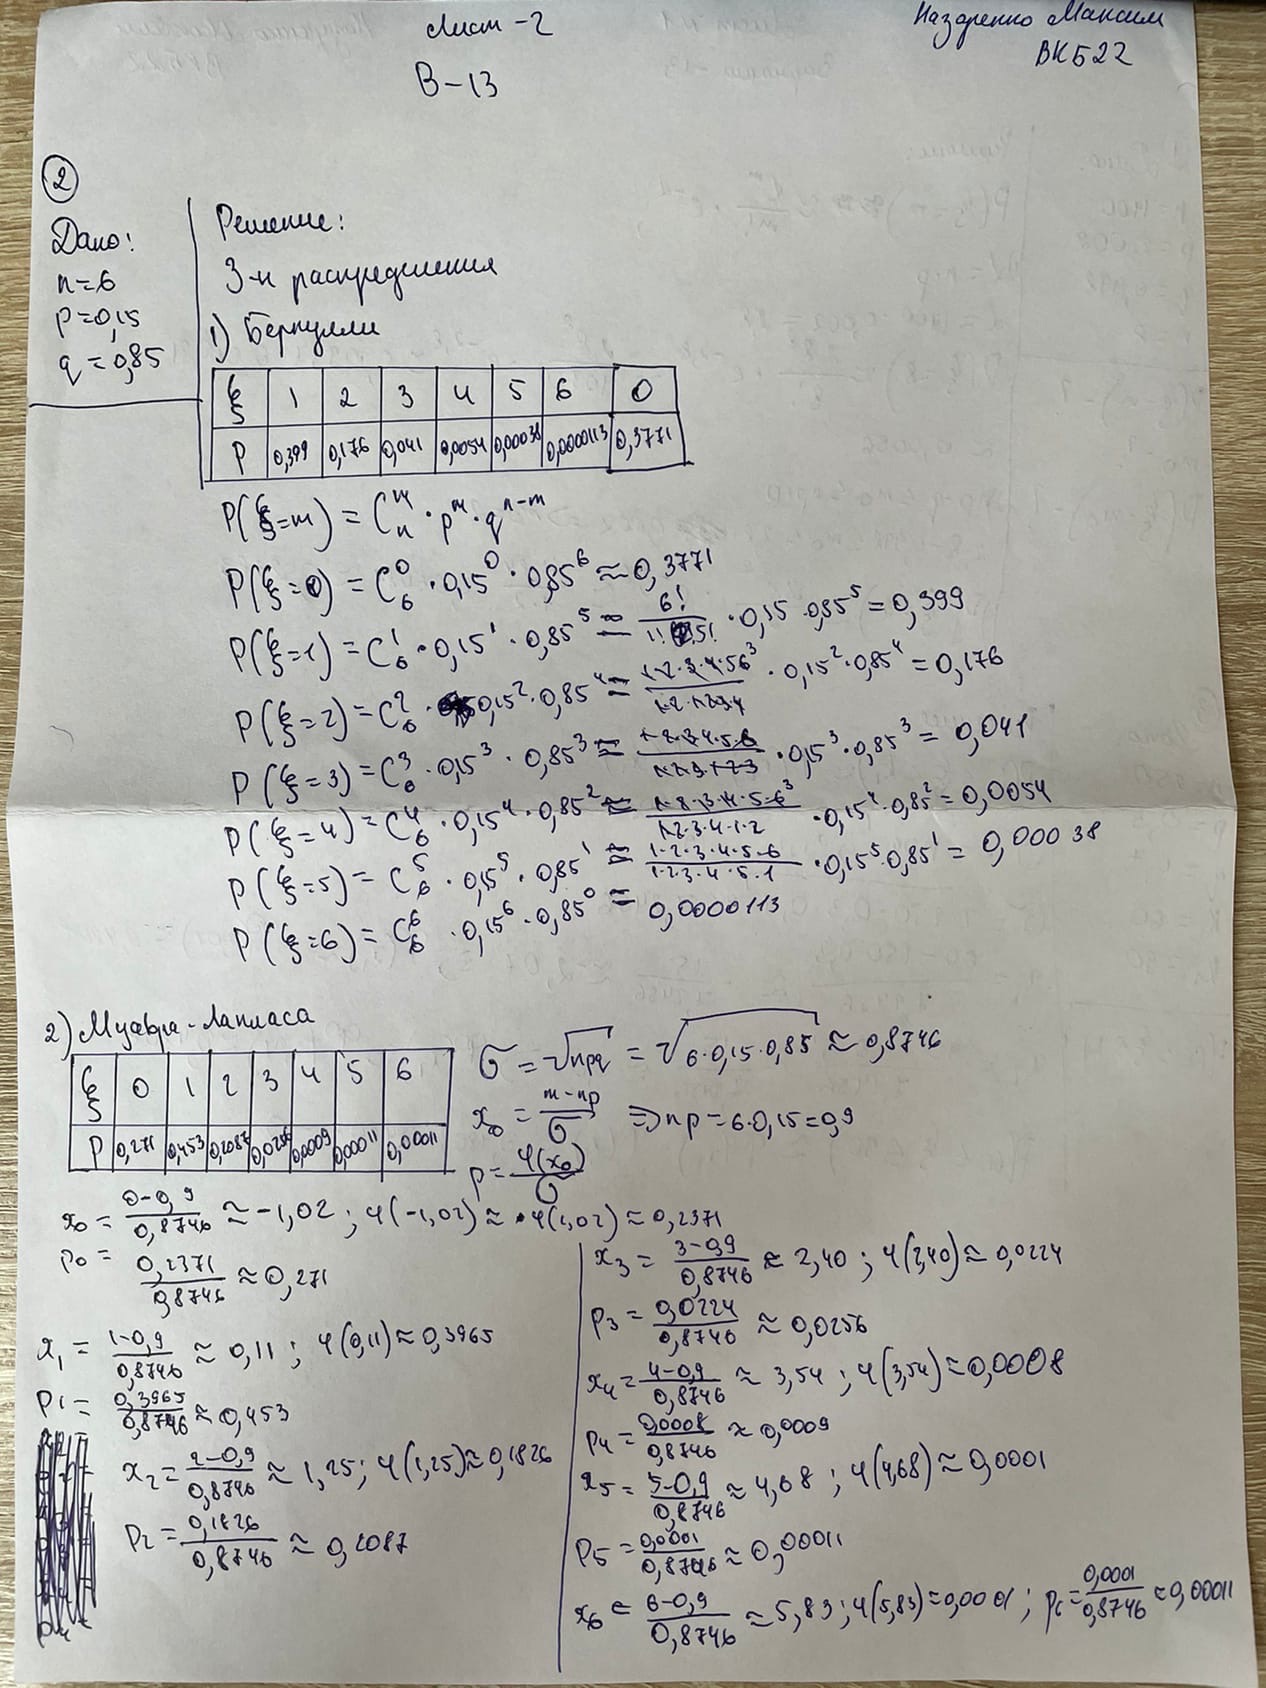 Лист-2
Назаренко Максим
ВКБ22
В-13
2
Дано:
n=6
p=0,15
q=0,85
Решение:
З-н распределения
1) Бернулли
ξ 1 2 3 4 5 6 0
P 0,399 0,176 0,041 0,0054 0,00038 0,0000113 0,3771
P(ξ=m) = C_n^m · p^m · q^{n-m}
P(ξ=0) = C_6^0 · 0,15^0 · 0,85^6 ≈ 0,3771
P(ξ=1) = C_6^1 · 0,15^1 · 0,85^5 = 6!/1!·5! · 0,15 · 0,85^5 = 0,399
P(ξ=2) = C_6^2 · 0,15^2 · 0,85^4 = 1·2·3·4·5·6^3/1·2·1·2·3·4 · 0,15^2 · 0,85^4 = 0,176
P(ξ=3) = C_6^3 · 0,15^3 · 0,85^3 = 1·2·3·4·5·6/1·2·3·1·2·3 · 0,15^3 · 0,85^3 = 0,041
P(ξ=4) = C_6^4 · 0,15^4 · 0,85^2 = 1·2·3·4·5·6^3/1·2·3·4·1·2 · 0,15^4 · 0,85^2 = 0,0054
P(ξ=5) = C_6^5 · 0,15^5 · 0,85^1 = 1·2·3·4·5·6/1·2·3·4·5·1 · 0,15^5 · 0,85^1 = 0,00038
P(ξ=6) = C_6^6 · 0,15^6 · 0,85^0 = 0,0000113
2) Муавра-Лапласа
ξ 0 1 2 3 4 5 6
P 0,271 0,453 0,2087 0,0256 0,0009 0,00011 0,00011
σ = √npq = √6·0,15·0,85 ≈ 0,8746
x_0 = m-np/σ ⇒ np = 6·0,15 = 0,9
p = φ(x_0)/σ
x_0 = 0-0,9/0,8746 ≈ -1,02 ; φ(-1,02) ≈ φ(1,02) ≈ 0,2371
p_0 = 0,2371/0,8746 ≈ 0,271
x_1 = 1-0,9/0,8746 ≈ 0,11 ; φ(0,11) ≈ 0,3965
p_1 = 0,3965/0,8746 ≈ 0,453
x_2 = 2-0,9/0,8746 ≈ 1,25 ; φ(1,25) ≈ 0,1826
p_2 = 0,1826/0,8746 ≈ 0,2087
x_3 = 3-0,9/0,8746 ≈ 2,40 ; φ(2,40) ≈ 0,0224
p_3 = 0,0224/0,8746 ≈ 0,0256
x_4 = 4-0,9/0,8746 ≈ 3,54 ; φ(3,54) ≈ 0,0008
p_4 = 0,0008/0,8746 ≈ 0,0009
x_5 = 5-0,9/0,8746 ≈ 4,68 ; φ(4,68) ≈ 0,0001
p_5 = 0,0001/0,8746 ≈ 0,00011
x_6 = 6-0,9/0,8746 ≈ 5,83 ; φ(5,83) ≈ 0,0001 ; p_6 = 0,0001/0,8746 ≈ 0,00011